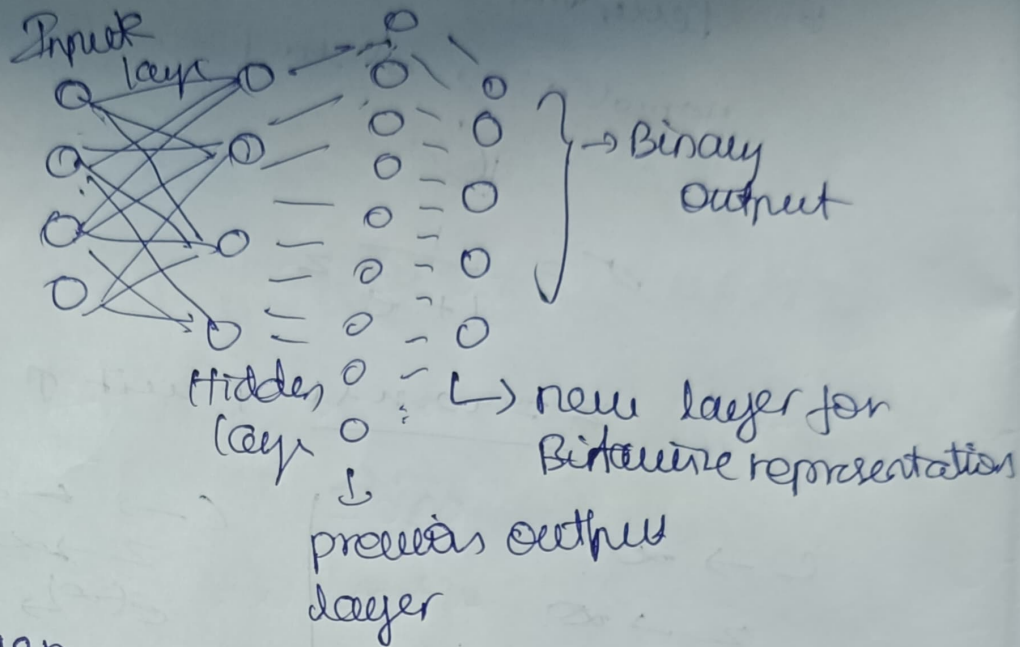 Input
layer
Binary
output
Hidden
layer
new layer for
Bitwise representation
previous output
layer